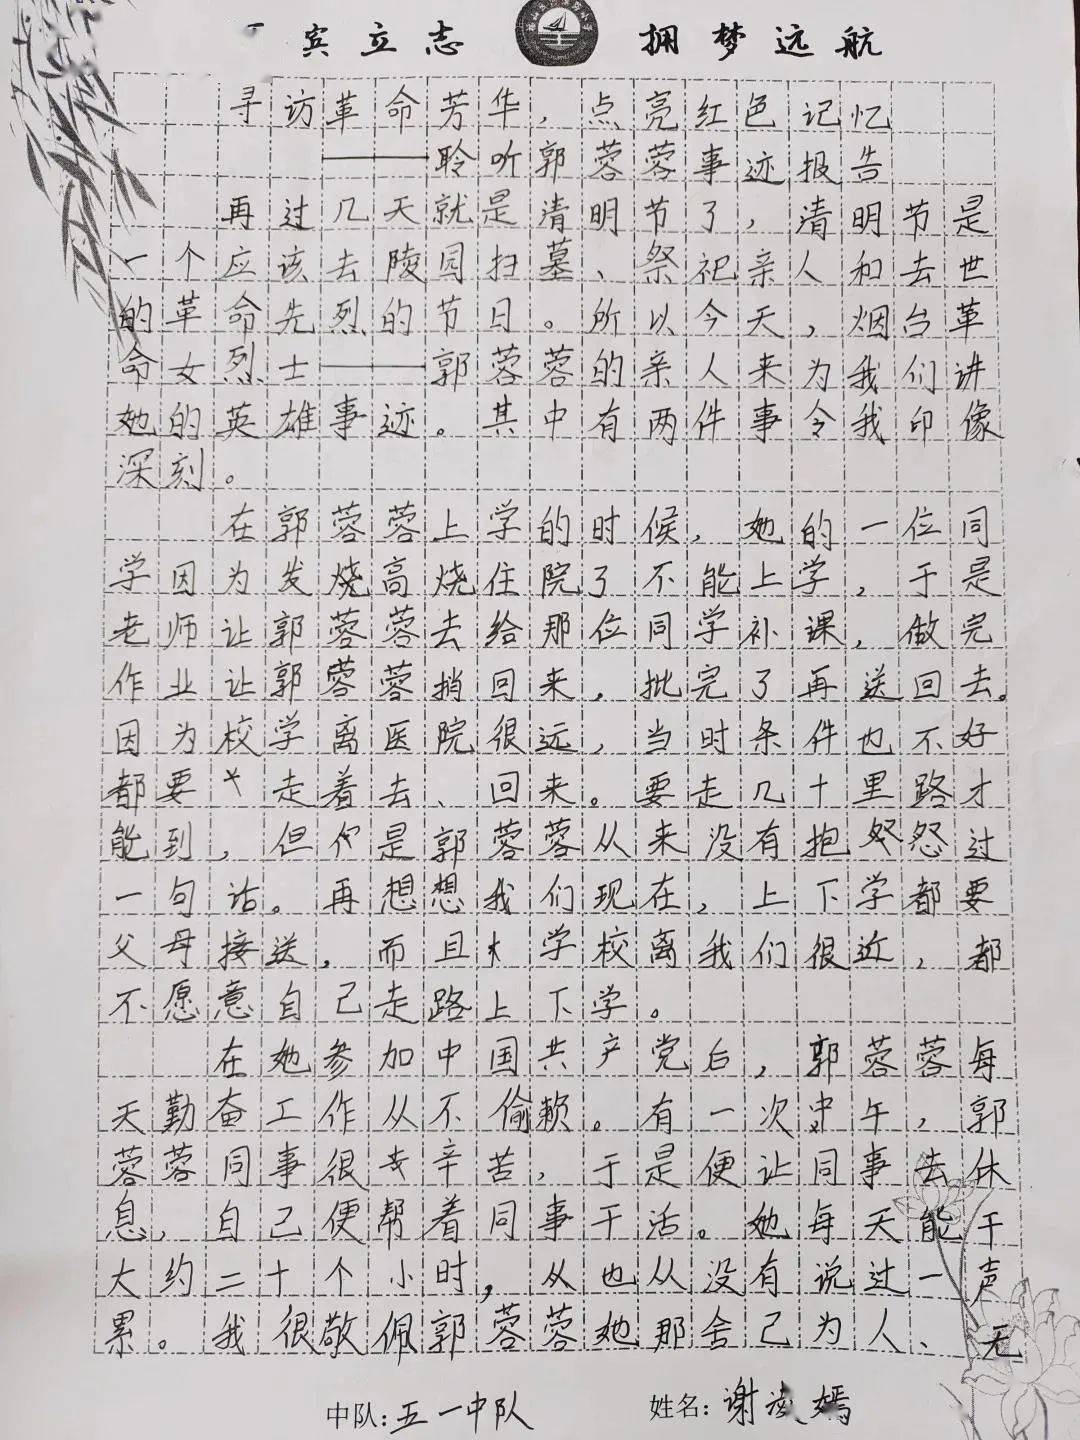 宾立志 拥梦远航
寻访革命芳华，点亮红色记忆
——聆听郭蓉蓉事迹报告
再过几天就是清明节了，清明节是
一个应该去陵园扫墓、祭祀亲人和去世
的革命先烈的节日。所以今天，烟台革
命女烈士——郭蓉蓉的亲人来为我们讲
她的英雄事迹。其中有两件事令我印像
深刻。
在郭蓉蓉上学的时候，她的一位同
学因为发烧高烧住院了不能上学，于是
老师让郭蓉蓉去给那位同学补课，做完
作业让郭蓉蓉捎回来，批完了再送回去。
因为校学离医院很远，当时条件也不好
都要走着去、回来。要走几十里路才
能到，但是郭蓉蓉从来没有抱怨过
一句话。再想想我们现在，上下学都要
父母接送，而且学校离我们很近，都
不愿意自己走路上下学。
在她参加中国共产党后，郭蓉蓉每
天勤奋工作从不偷赖。有一次中午，郭
蓉蓉同事很辛苦，于是便让同事去休
息，自己便帮着同事干活。她每天能干
大约二十个小时，从也从没有说过一声
累。我很敬佩郭蓉蓉她那舍己为人、无
中队：五一中队 姓名：谢凌嫣